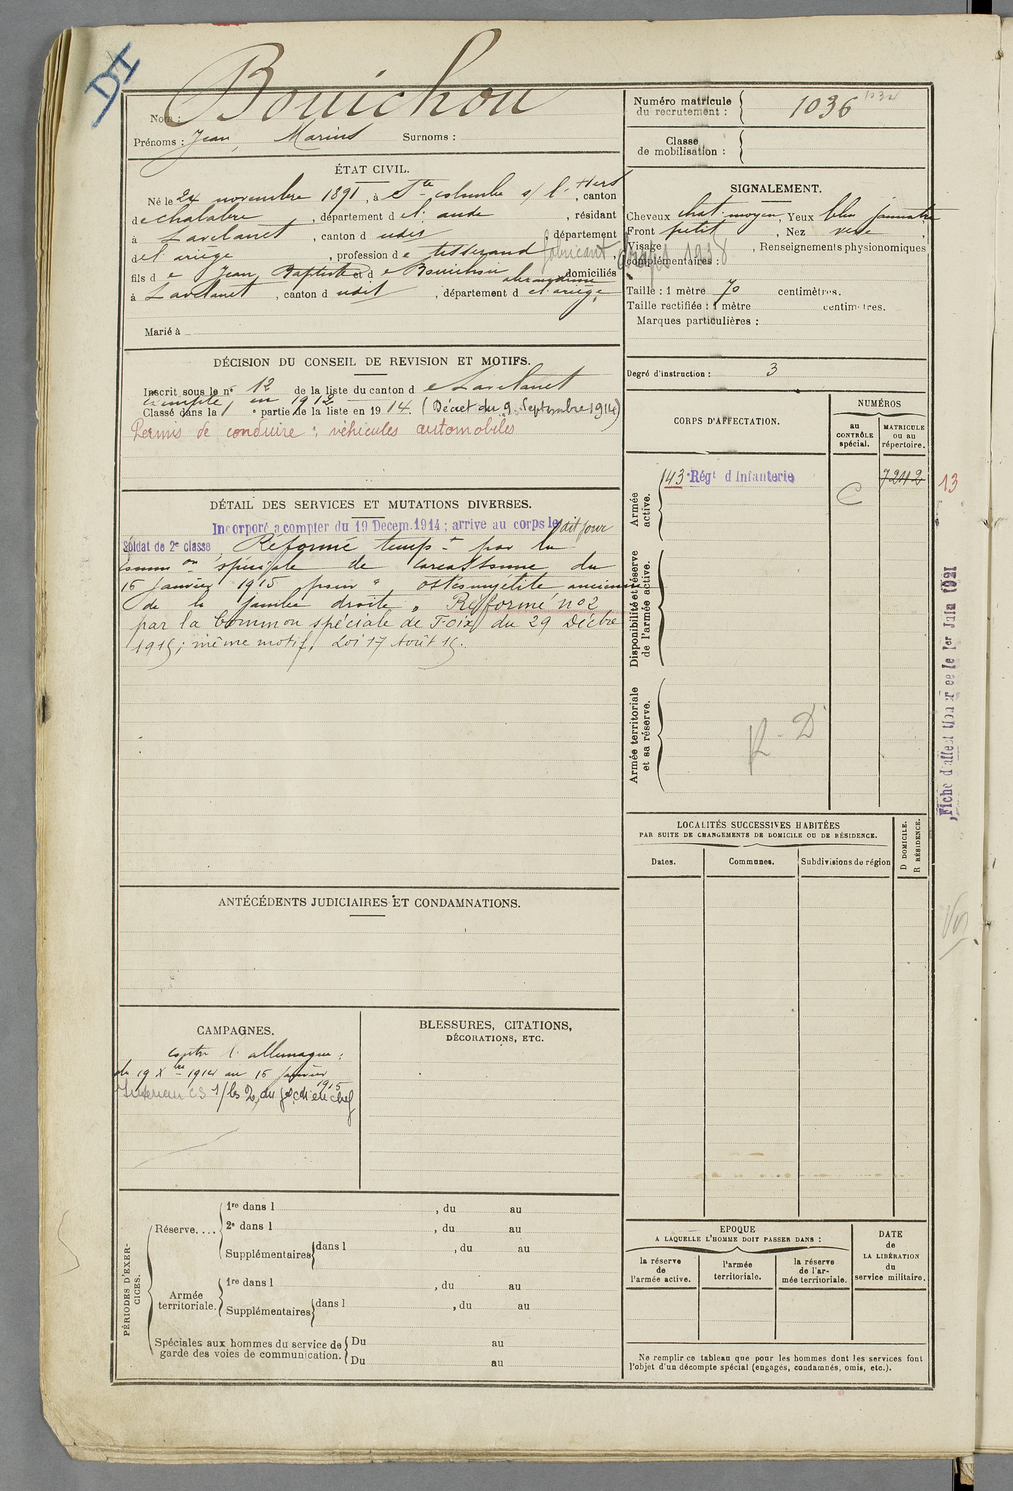 DI
Nom : Bouichou
Prénoms : Jean, Marius Surnoms :
Numéro matricule du recrutement : 1036
Classe de mobilisation :
ÉTAT CIVIL.
Né le 24 novembre 1891, à Ste colombe s/ l'Hers, canton
de chalabre, département de l'aude, résidant
à Lavelanet, canton d udit, département
de l'ariège, profession de tisserand fabricant draps 1938
fils de Jean Baptiste et de Bouichou alexandrine domiciliés
à Lavelanet, canton d udit, département de l'ariège,
Marié à
SIGNALEMENT.
Cheveux chat. moyen, Yeux bleu jaunatre
Front petit, Nez
Visage , Renseignements physionomiques
complémentaires :
Taille : 1 mètre 70 centimètres.
Taille rectifiée : 1 mètre centimètres.
Marques particulières :
Degré d'instruction : 3
DÉCISION DU CONSEIL DE REVISION ET MOTIFS.
Inscrit sous le n° 12 de la liste du canton de Lavelanet
exempté en 1912
Classé dans la 1 e partie de la liste en 1914. (Décret du 9 Septembre 1914)
Permis de conduire : véhicules automobiles
DÉTAIL DES SERVICES ET MUTATIONS DIVERSES.
Incorporé a compter du 19 Décem. 1914 ; arrivé au corps le dit jour
Soldat de 2e classe, Réformé temp.t par la
comm.on spéciale de Carcassonne du
15 Janvier 1915 pour " ostéomyélite ancienne
de la jambe droite " Réformé n°2
par la Common spéciale de Foix du 29 Décbre
1915 ; même motif. Loi 17 Août 15.
CORPS D'AFFECTATION.
NUMÉROS
au CONTRÔLE spécial.
MATRICULE ou au répertoire.
Armée active.
143e Régt d'Infanterie
C
7242
13
Disponibilité et réserve de l'armée active.
Armée territoriale et sa réserve.
R. D
Fiche d'affectation créée le 1er Juin 1921
LOCALITÉS SUCCESSIVES HABITÉES
PAR SUITE DE CHANGEMENTS DE DOMICILE OU DE RÉSIDENCE.
Dates. Communes. Subdivisions de région
D DOMICILE.
R RÉSIDENCE.
ANTÉCÉDENTS JUDICIAIRES ET CONDAMNATIONS.
CAMPAGNES.
contre l'allemagne :
du 19 Xbre 1914 au 15 janvier 1915
BLESSURES, CITATIONS,
DÉCORATIONS, ETC.
PÉRIODES D'EXERCICES.
Réserve....
1re dans l , du au
2e dans l , du au
Supplémentaires dans l , du au
Armée territoriale.
1re dans l , du au
Supplémentaires dans l , du au
Spéciales aux hommes du service de garde des voies de communication.
Du au
Du au
EPOQUE
A LAQUELLE L'HOMME DOIT PASSER DANS :
la réserve de l'armée active.
l'armée territoriale.
la réserve de l'armée territoriale.
DATE de LA LIBÉRATION du service militaire.
Ne remplir ce tableau que pour les hommes dont les services font
l'objet d'un décompte spécial (engagés, condamnés, omis, etc.).